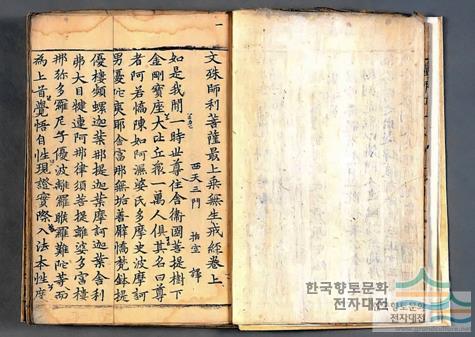 文殊師利菩薩最上乘無生戒經卷上
西天三門 指空 譯
如是我聞一時世尊住舍衛國菩提樹下
金剛寶座大比丘衆一萬人俱其名曰尊
者阿若憍陳如阿濕婆氏多摩史波摩訶
男憂陀夷耶舍富那無垢善臂憍梵鉢提
優樓頻螺迦葉那提迦葉摩訶迦葉舍利
弗大目犍連阿那律須菩提離婆多富樓
那弥多羅尼子優波離羅睺羅難陀等而
爲上首覺悟自性現證實際入法本性度
한국향토문화
전자대전